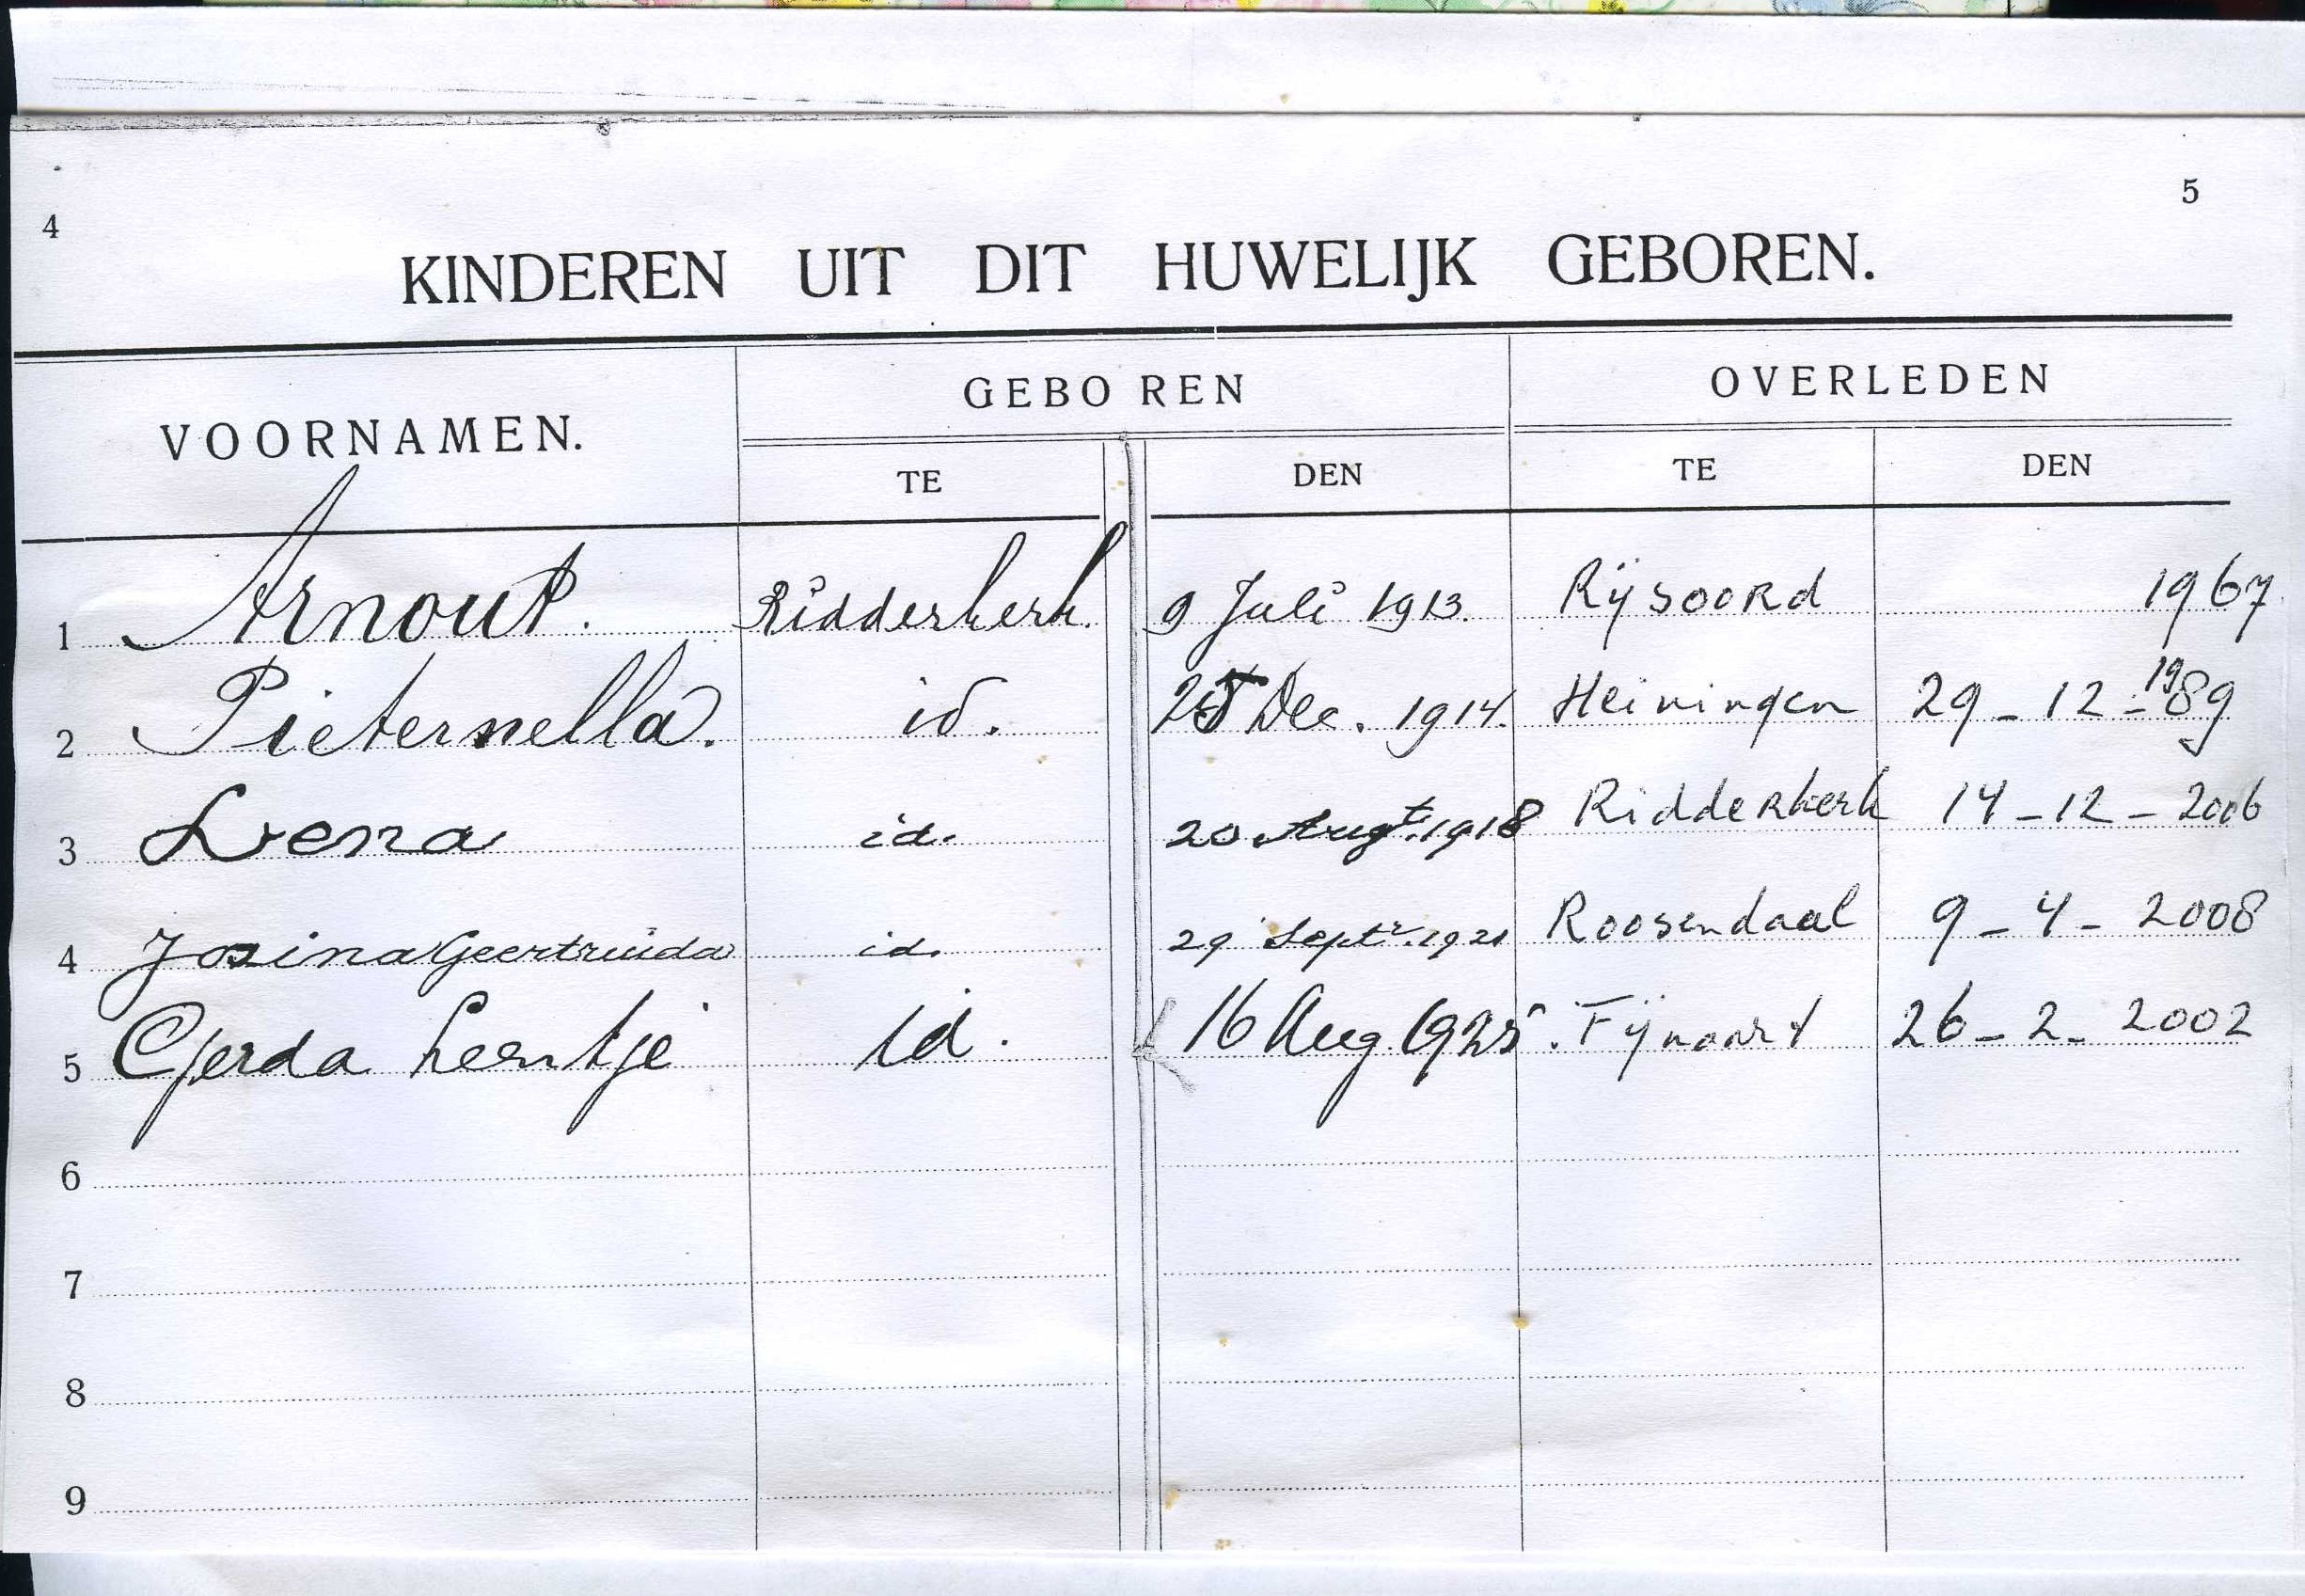 4
5
KINDEREN UIT DIT HUWELIJK GEBOREN.
VOORNAMEN. GEBOREN OVERLEDEN
TE DEN TE DEN
1 Arnout. Ridderkerk. 9 Juli 1913. Rijsoord 1967
2 Pieternella. id. Dec. 1914. Heiningen 29-12-1989
3 Lena id. 20 Augt. 1918 Ridderkerk 14-12-2006
4 Josina Geertruida id. 29 Septr. 1921 Roosendaal 9-4-2008
5 Gerda Leentje id. 16 Aug. 1925. Fijnaart 26-2-2002
6
7
8
9